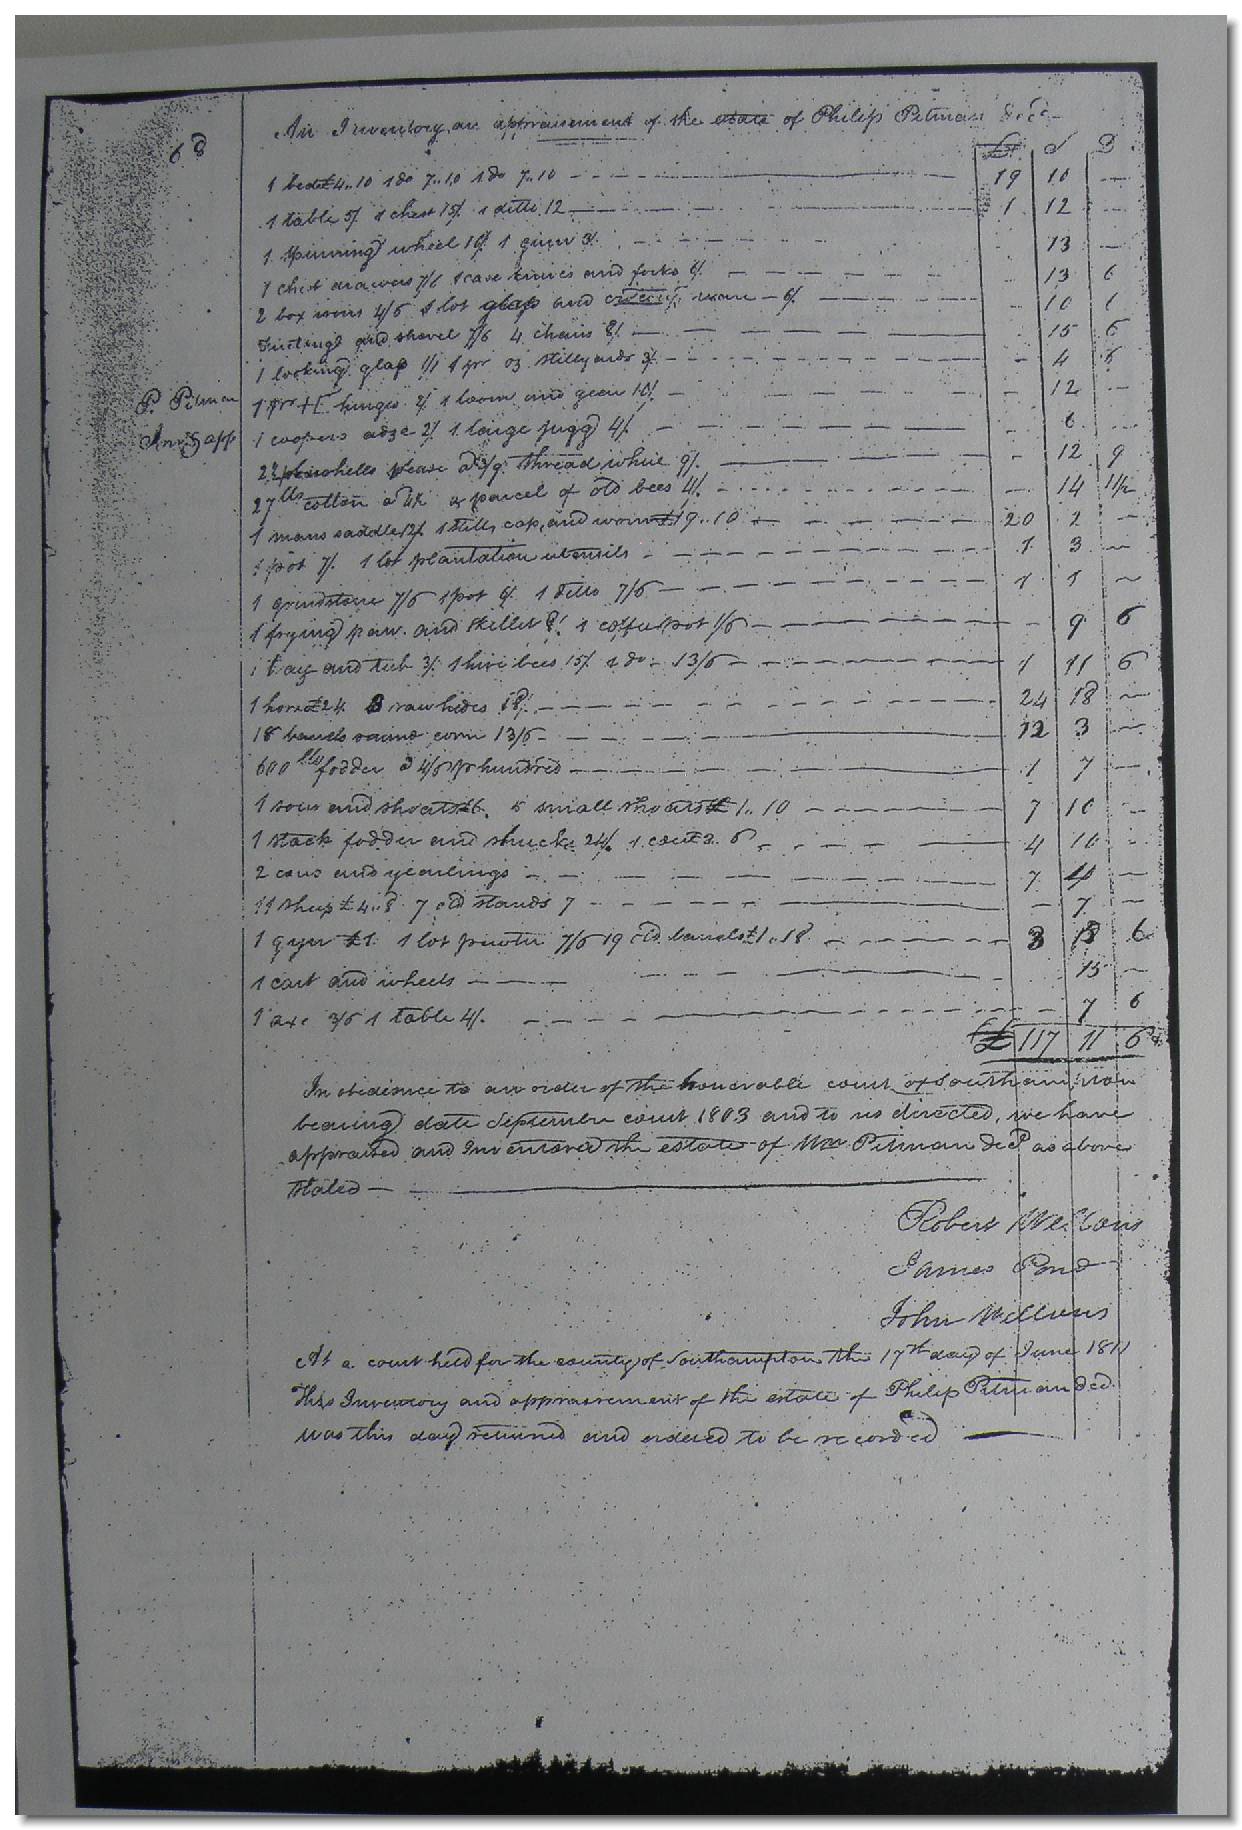 An Inventory an appraisement of the estate of Philip Pitman Decd
68
£ S D
1 bed £4..10 1 do 7..10 1 do 7..10 19 10 —
1 table 5/. 1 chest 15/. 1 ditto 12 1 12 —
1 Spinning wheel 10/. 1 gun 3/. 13 —
1 chest drawers 7/6 1 case knives and forks 6/. 13 6
2 box irons 4/6 1 lot glass and ware — 6/. 10 6
and shovel 7/6 4 chairs 8/. 15 6
1 looking glass 1/ 1 pr of stillyards 3/. 4
P. Pitman
1 pr H hinges 2/. 1 loom and gear 10/. 12 —
Inv. & app
1 coopers adze 2/. 1 large jugg 4/. 6 —
pease thread while 9/. 12 9
27 lbs cotton a parcel of old bees 4/. 14 1 1/2
1 mans saddle 12/. 1 still, cap, and worm £19..10 20 2 —
1 pot 7/. 1 lot plantation utensils 1 3 —
1 grindstone 7/6 1 pot 6/. 1 ditto 7/6 1 1 —
1 frying pan and skillet 8/. 1 pot 1/6 9 6
1 tray and tub 3/. 1 hive bees 15/. 1 do. 13/6 1 11 6
1 horse £24 3 raw hides 18/. 24 18 —
18 barrels round corn 13/6 12 3 —
600 lbs fodder @ 4/6 pr hundred 1 7 —
1 sow and shoats £6. 5 small shoats £1..10 7 10 —
1 stack fodder and shucks 24/. 1 3..6 4 10 —
2 cows and yearlings 7 4 —
11 sheep £4..8 7 old stands 7 — 7 —
1 £1 1 lot pewter 7/6 19 old barrels £1..18 3 18 6
1 cart and wheels 15 —
1 axe 3/6 1 table 4/. 7 6
£117 11 6
In obedience to an order of the honorable court of Southampton
bearing date September court 1803 and to us directed, we have
appraised and Inventored the estate of Wm Pitman decd as above
stated —
Robert Wellons
James Pond
John Wellons
At a court held for the county of Southampton the 17th day of June 1811
This Inventory and appraisement of the estate of Philip Pitman decd
was this day returned and ordered to be recorded —